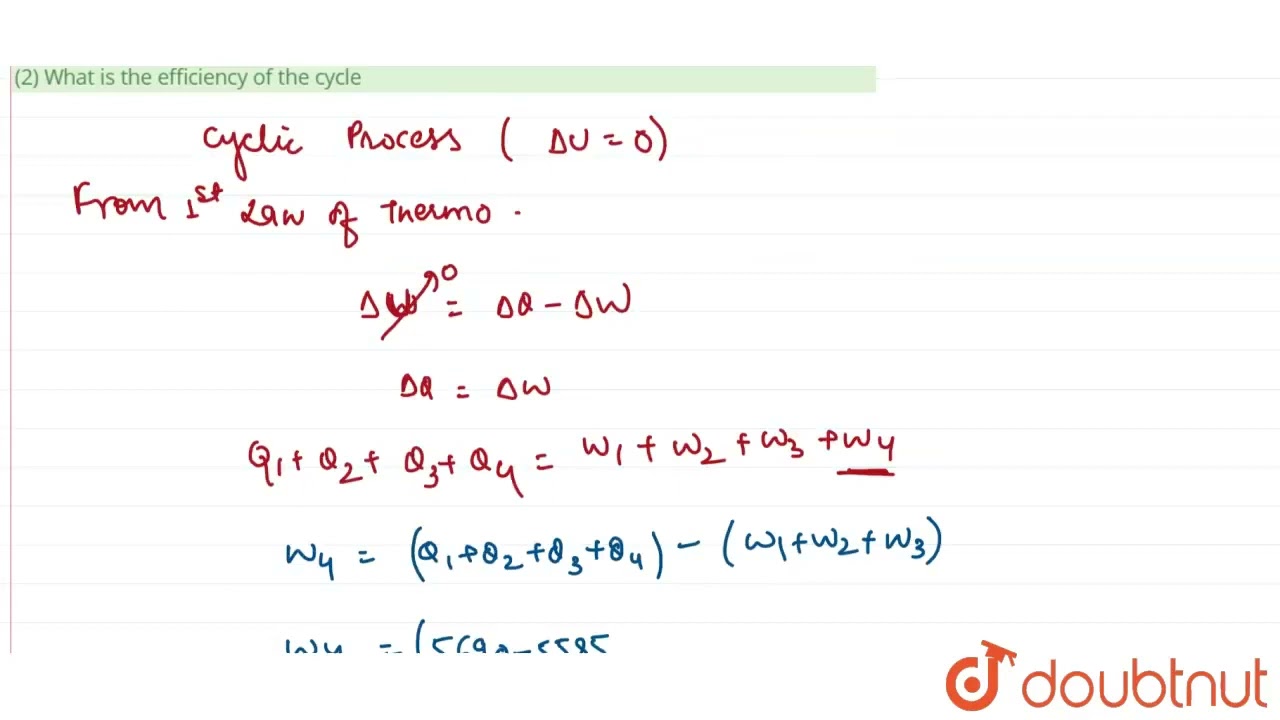 (2) What is the efficiency of the cycle
Cyclic Process ( ΔU = 0)
From 1st Law of Thermo .
0
ΔU = ΔQ - ΔW
ΔQ = ΔW
Q1 + Q2 + Q3 + Q4 = W1 + W2 + W3 + W4
W4 = (Q1+Q2+Q3+Q4) - (W1+W2+W3)
W4 = (5690-5585
doubtnut